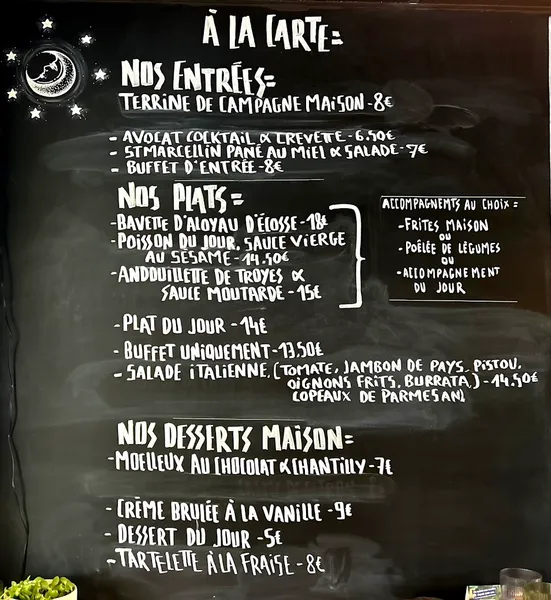 À LA CARTE=
NOS ENTRÉES=
TERRINE DE CAMPAGNE MAISON - 8€
- AVOCAT COCKTAIL & CREVETTE - 6.50€
- ST MARCELLIN PANÉ AU MIEL & SALADE - 7€
- BUFFET D'ENTRÉE - 8€
NOS PLATS=
- BAVETTE D'ALOYAU D'ÉCOSSE - 18€
- POISSON DU JOUR, SAUCE VIERGE
AU SÉSAME - 14.50€
- ANDOUILLETTE DE TROYES &
SAUCE MOUTARDE - 15€
ACCOMPAGNEMTS AU CHOIX =
- FRITES MAISON
OU
- POÊLÉE DE LÉGUMES
OU
- ACCOMPAGNEMENT
DU JOUR
- PLAT DU JOUR - 14€
- BUFFET UNIQUEMENT - 13.50€
- SALADE ITALIENNE, (TOMATE, JAMBON DE PAYS, PISTOU,
OIGNONS FRITS, BURRATA,) - 14,50€
COPEAUX DE PARMESAN)
NOS DESSERTS MAISON=
- MOELLEUX AU CHOCOLAT & CHANTILLY - 7€
- CRÈME BRULÉE À LA VANILLE - 9€
- DESSERT DU JOUR - 5€
- TARTELETTE À LA FRAISE - 8€